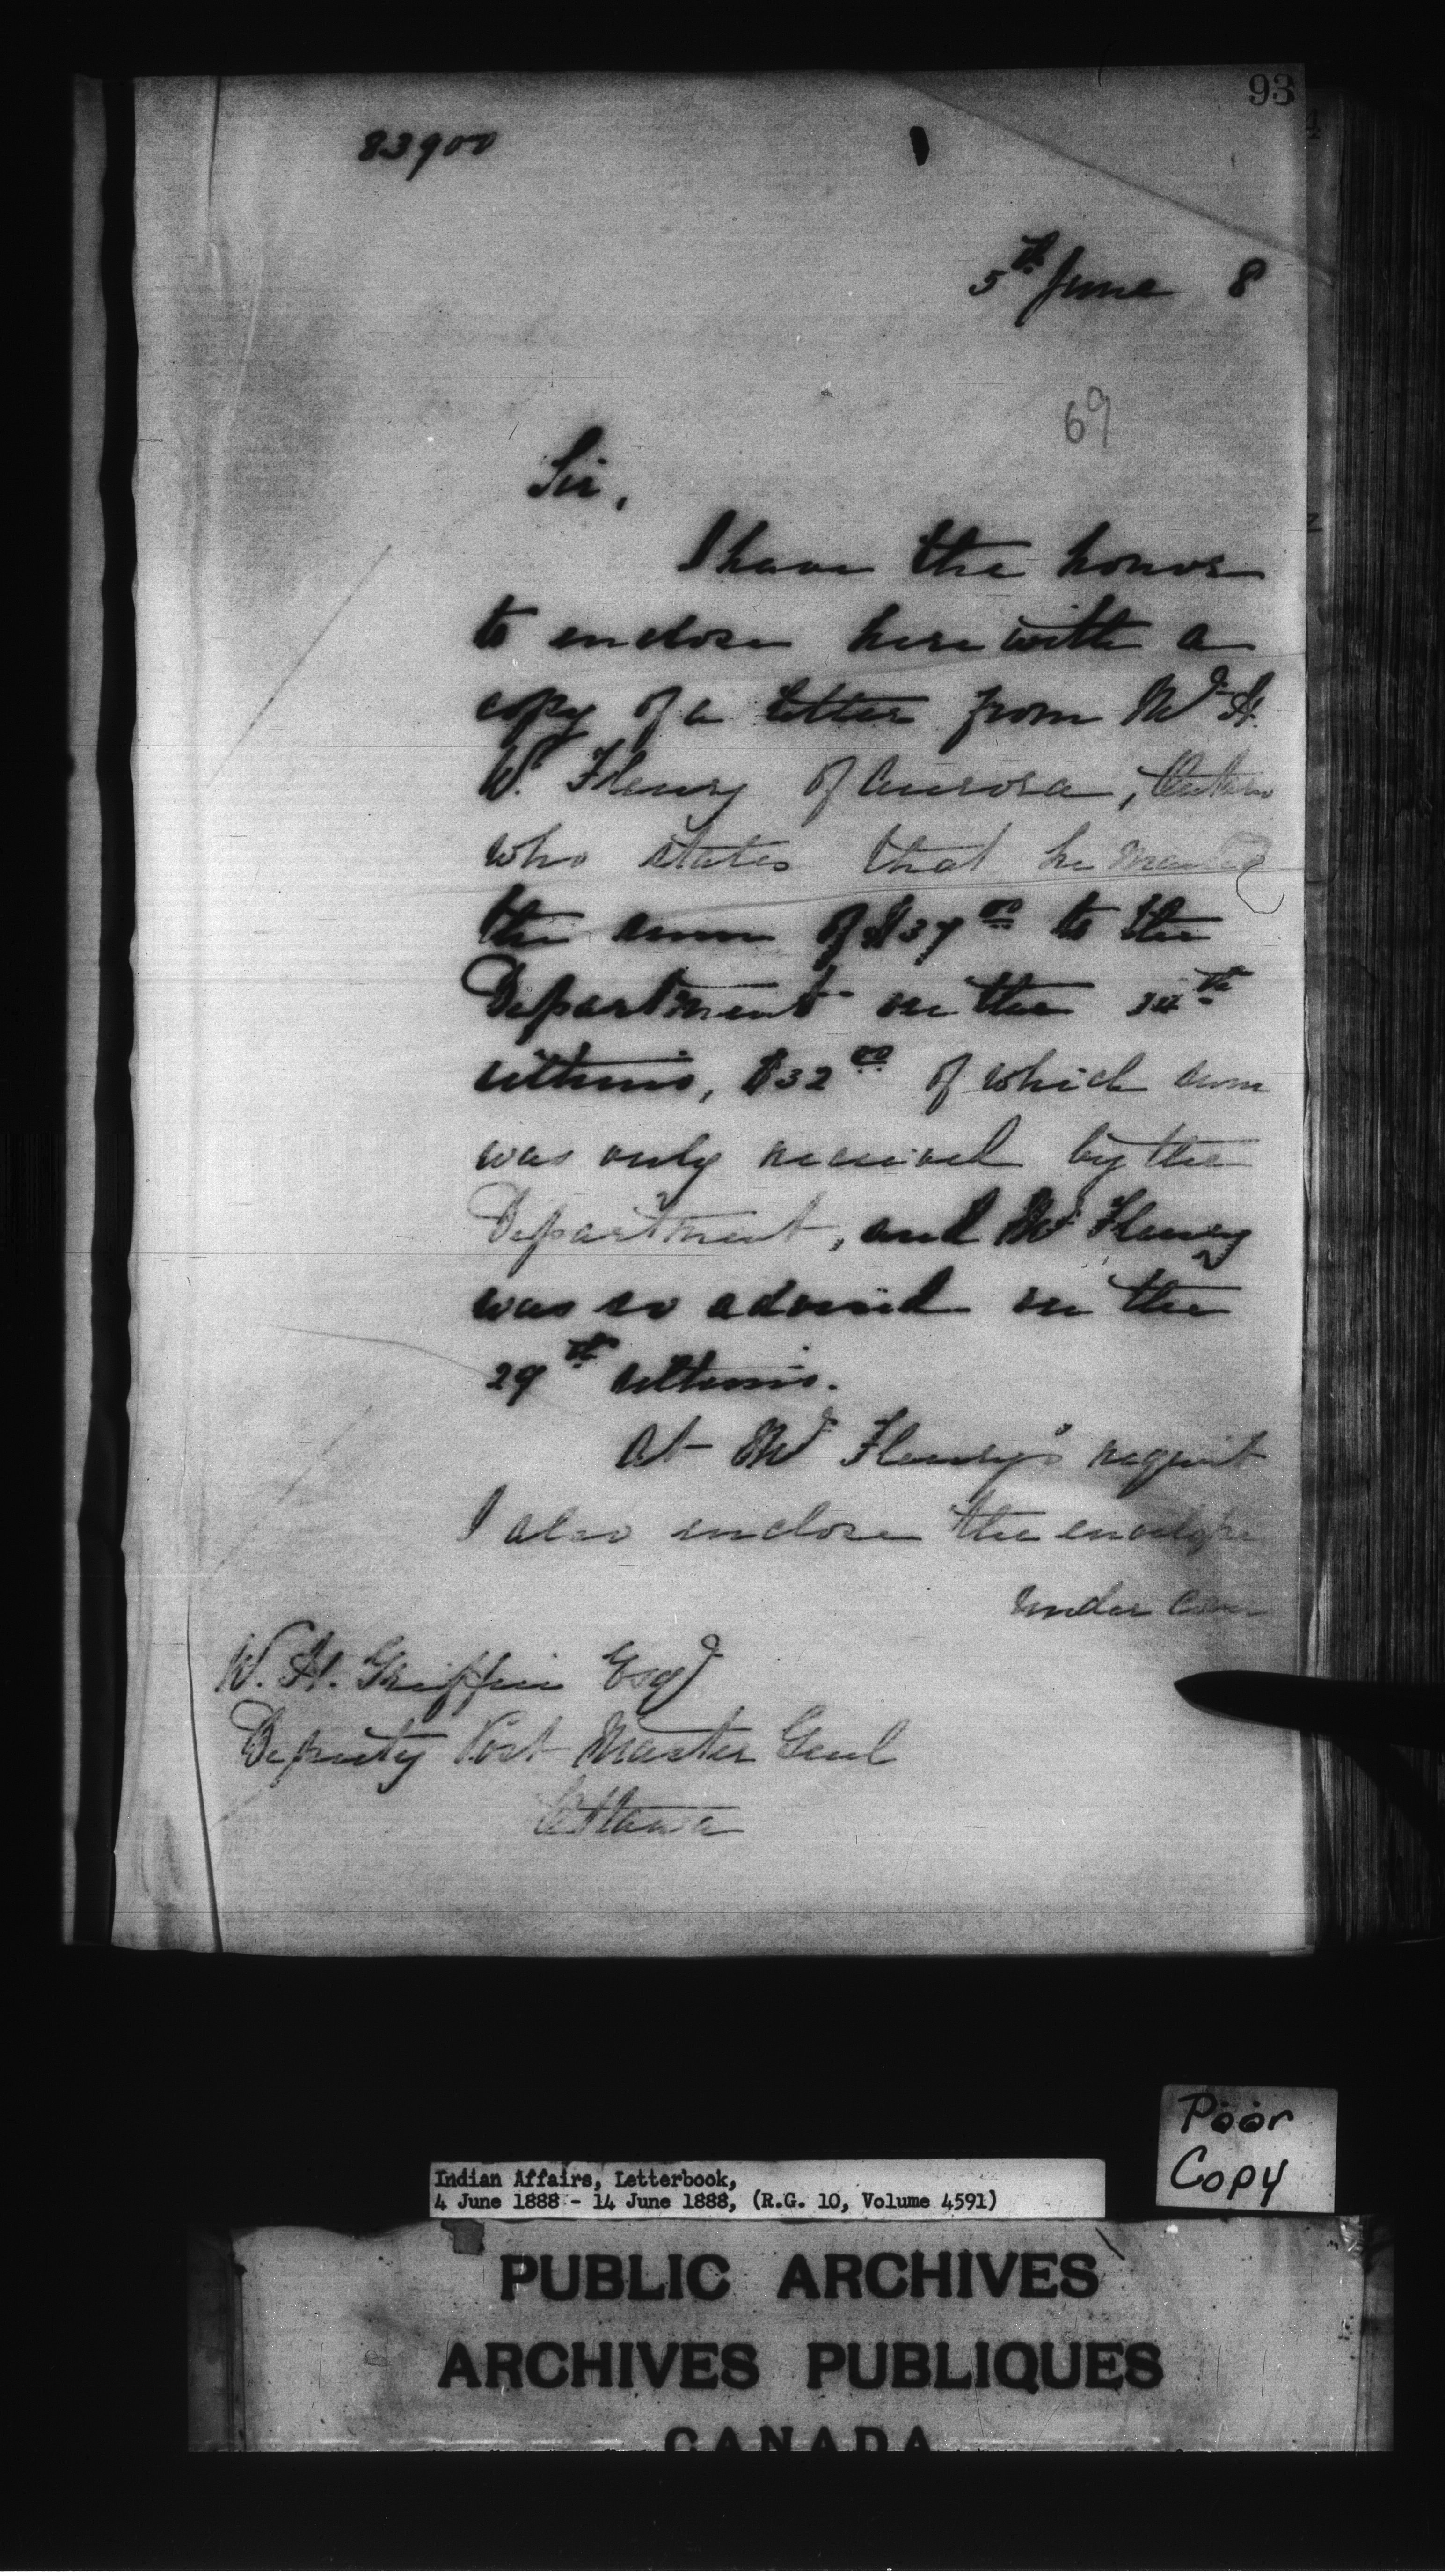 93
83900
5th June 8
69
Sir,
I have the honor
to enclose herewith a
copy of a letter from Mr H.
W. Fleury of Aurora, Ontario
who states that he mailed
the sum of $37 00 to the
Department on the th
ultimo, $32 00 of which sum
was only received by the
Department, and Mr Fleury
was so advised on the
29th ultimo.
At Mr Fleury's request
I also enclose the envelope
under cover
W. H. Griffin Esqr
Deputy Post Master Genl
Ottawa
Poor
Copy
Indian Affairs, Letterbook,
4 June 1888 - 14 June 1888, (R.G. 10, Volume 4591)
PUBLIC ARCHIVES
ARCHIVES PUBLIQUES
CANADA